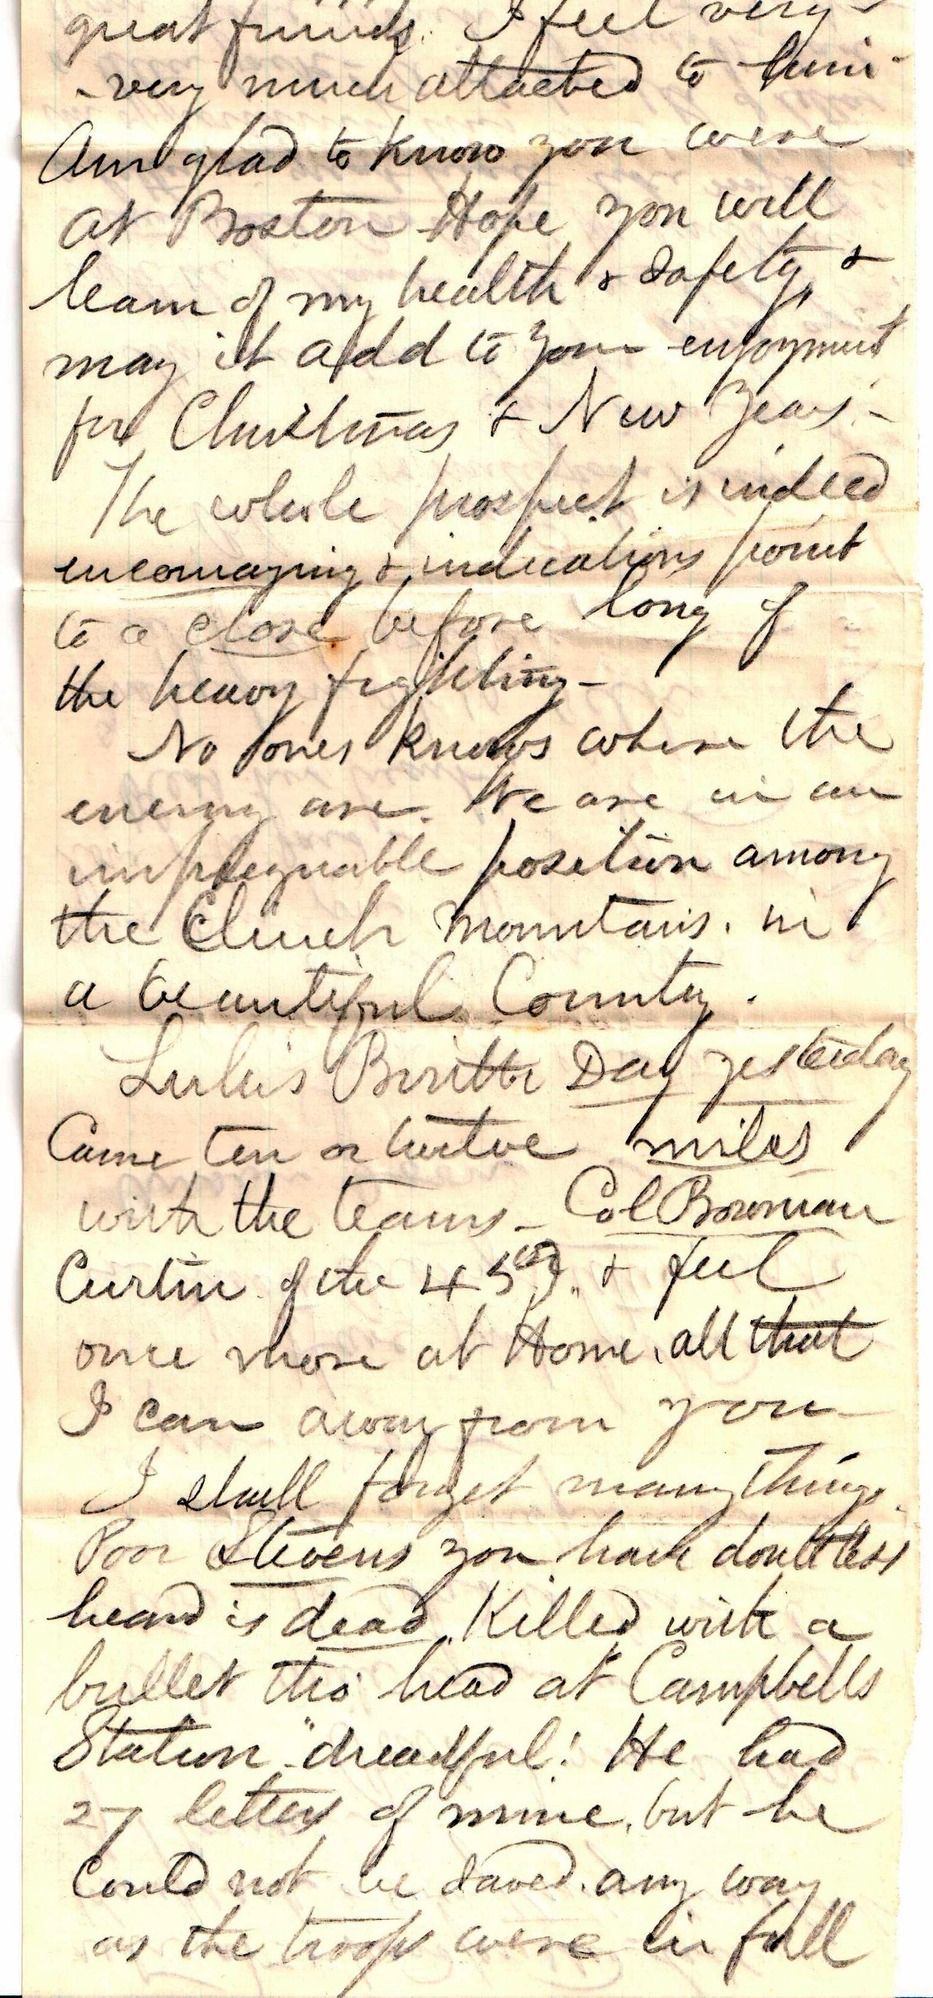 great friends. I feel very -
- very much attached to him -
Am glad to know you were
at Boston Hope you will
learn of my health & safety, &
may it add to your enjoyment
for Christmas & New Years. -
The whole prospect is indeed
encouraging & indications point
to a close before long of
the heavy fighting -
No ones knows where the
enemy are. We are in an
impregnable position among
the Clinch Mountains. in
a beautiful County.
Lulu's Birth Day yesterday
Came ten or twelve miles
with the teams - Col Bowman
Curtin of the 45th. & feel
once more at Home, all that
I can away from you -
I shall forget many things.
Poor Stevens you have doubtless
heard is dead Killed with a
bullet thro' head at Campbells
Station "dreadful! He had
27 letters of mine, but he
could not be saved. any way
as the troops were in full